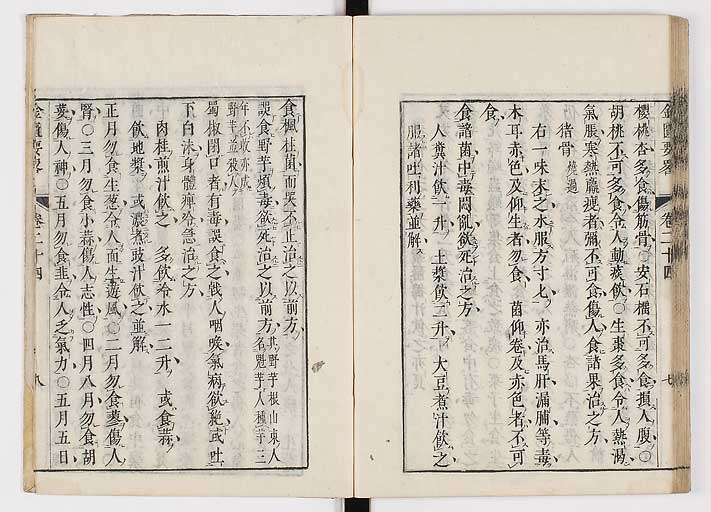 金匱要略 卷二十四 七
櫻桃杏多食傷筋骨○安石榴不可多食損人腹○
胡桃不可多食令人動痰飲○生棗多食令人熱渴
氣脹寒熱羸瘦者彌不可食傷人食諸果治之方
猪骨燒過
右一味末之水服方寸匕亦治馬肝漏脯等毒
木耳赤色及仰生者勿食 菌仰卷及赤色者不可
食
食諸菌中毒悶亂欲死治之方
人糞汁飲一升 土漿飲一二升 大豆煮汁飲之
服諸吐利藥並解
食楓柱菌而哭不止治之以前方
誤食野芋煩毒欲死治之以前方其野芋根山東人名魁芋人種芋三
年不收亦成野芋並殺人
蜀椒閉口者有毒誤食之戟人咽喉氣病欲絶或吐
下白沫身體痺冷急治之方
肉桂煎汁飲之 多飲冷水一二升 或食蒜
飲地漿 或濃煮豉汁飲之並解
正月勿食生葱令人面生遊風○二月勿食蓼傷人
腎○三月勿食小蒜傷人志性○四月八月勿食胡
荽傷人神○五月勿食韭令人乏氣力○五月五日
金匱要略 卷二十四 八